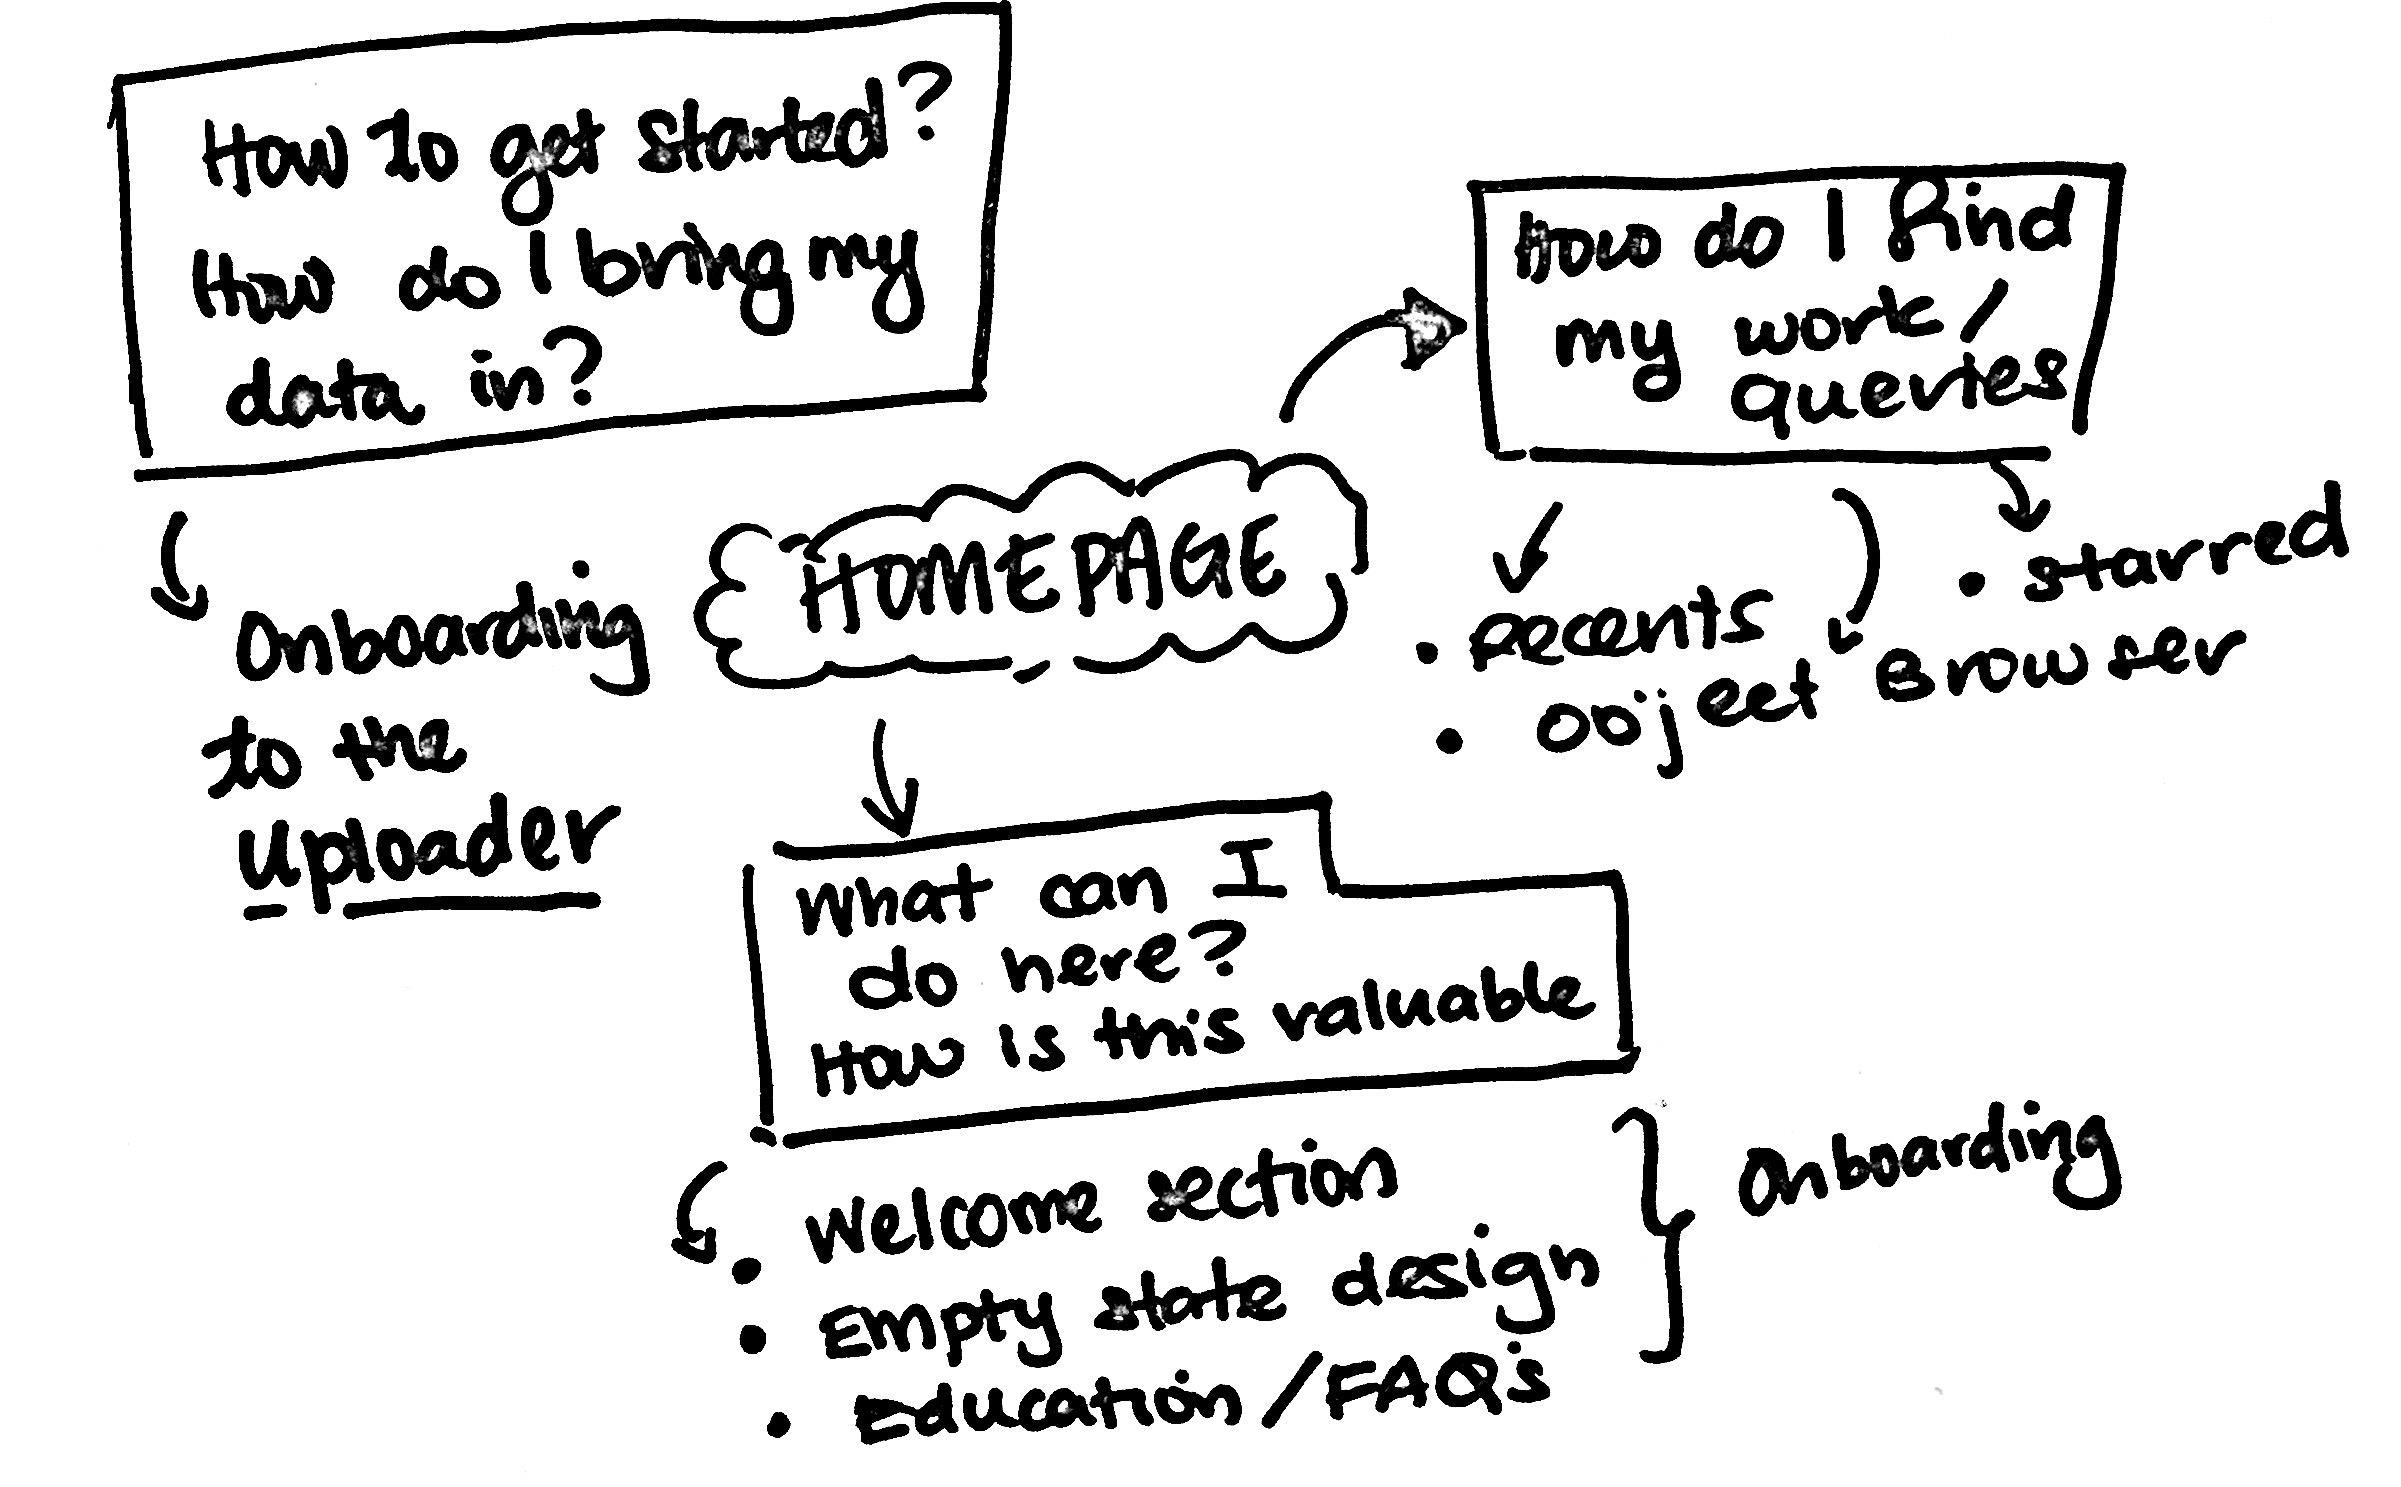 How to get started?
How do I bring my
data in?
Onboarding
to the
Uploader
HOMEPAGE
How do I find
my work/
queries
• Starred
• Recents
• Object Browser
What can I
do here?
How is this valuable
• Welcome section
• Empty state design
• Education/FAQ's
Onboarding